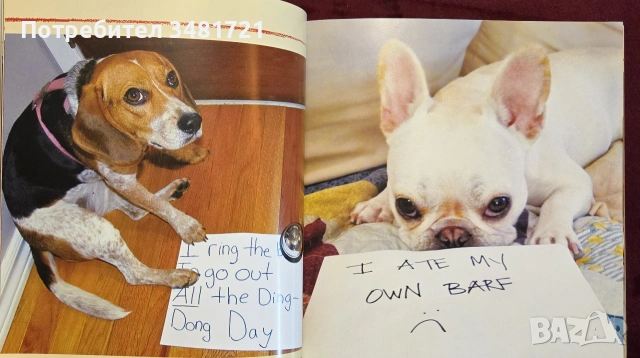 Потребител 3481751
I ring the
I go out
All the Ding-
Dong Day
I ATE MY
OWN BARF
BAZAR.bg